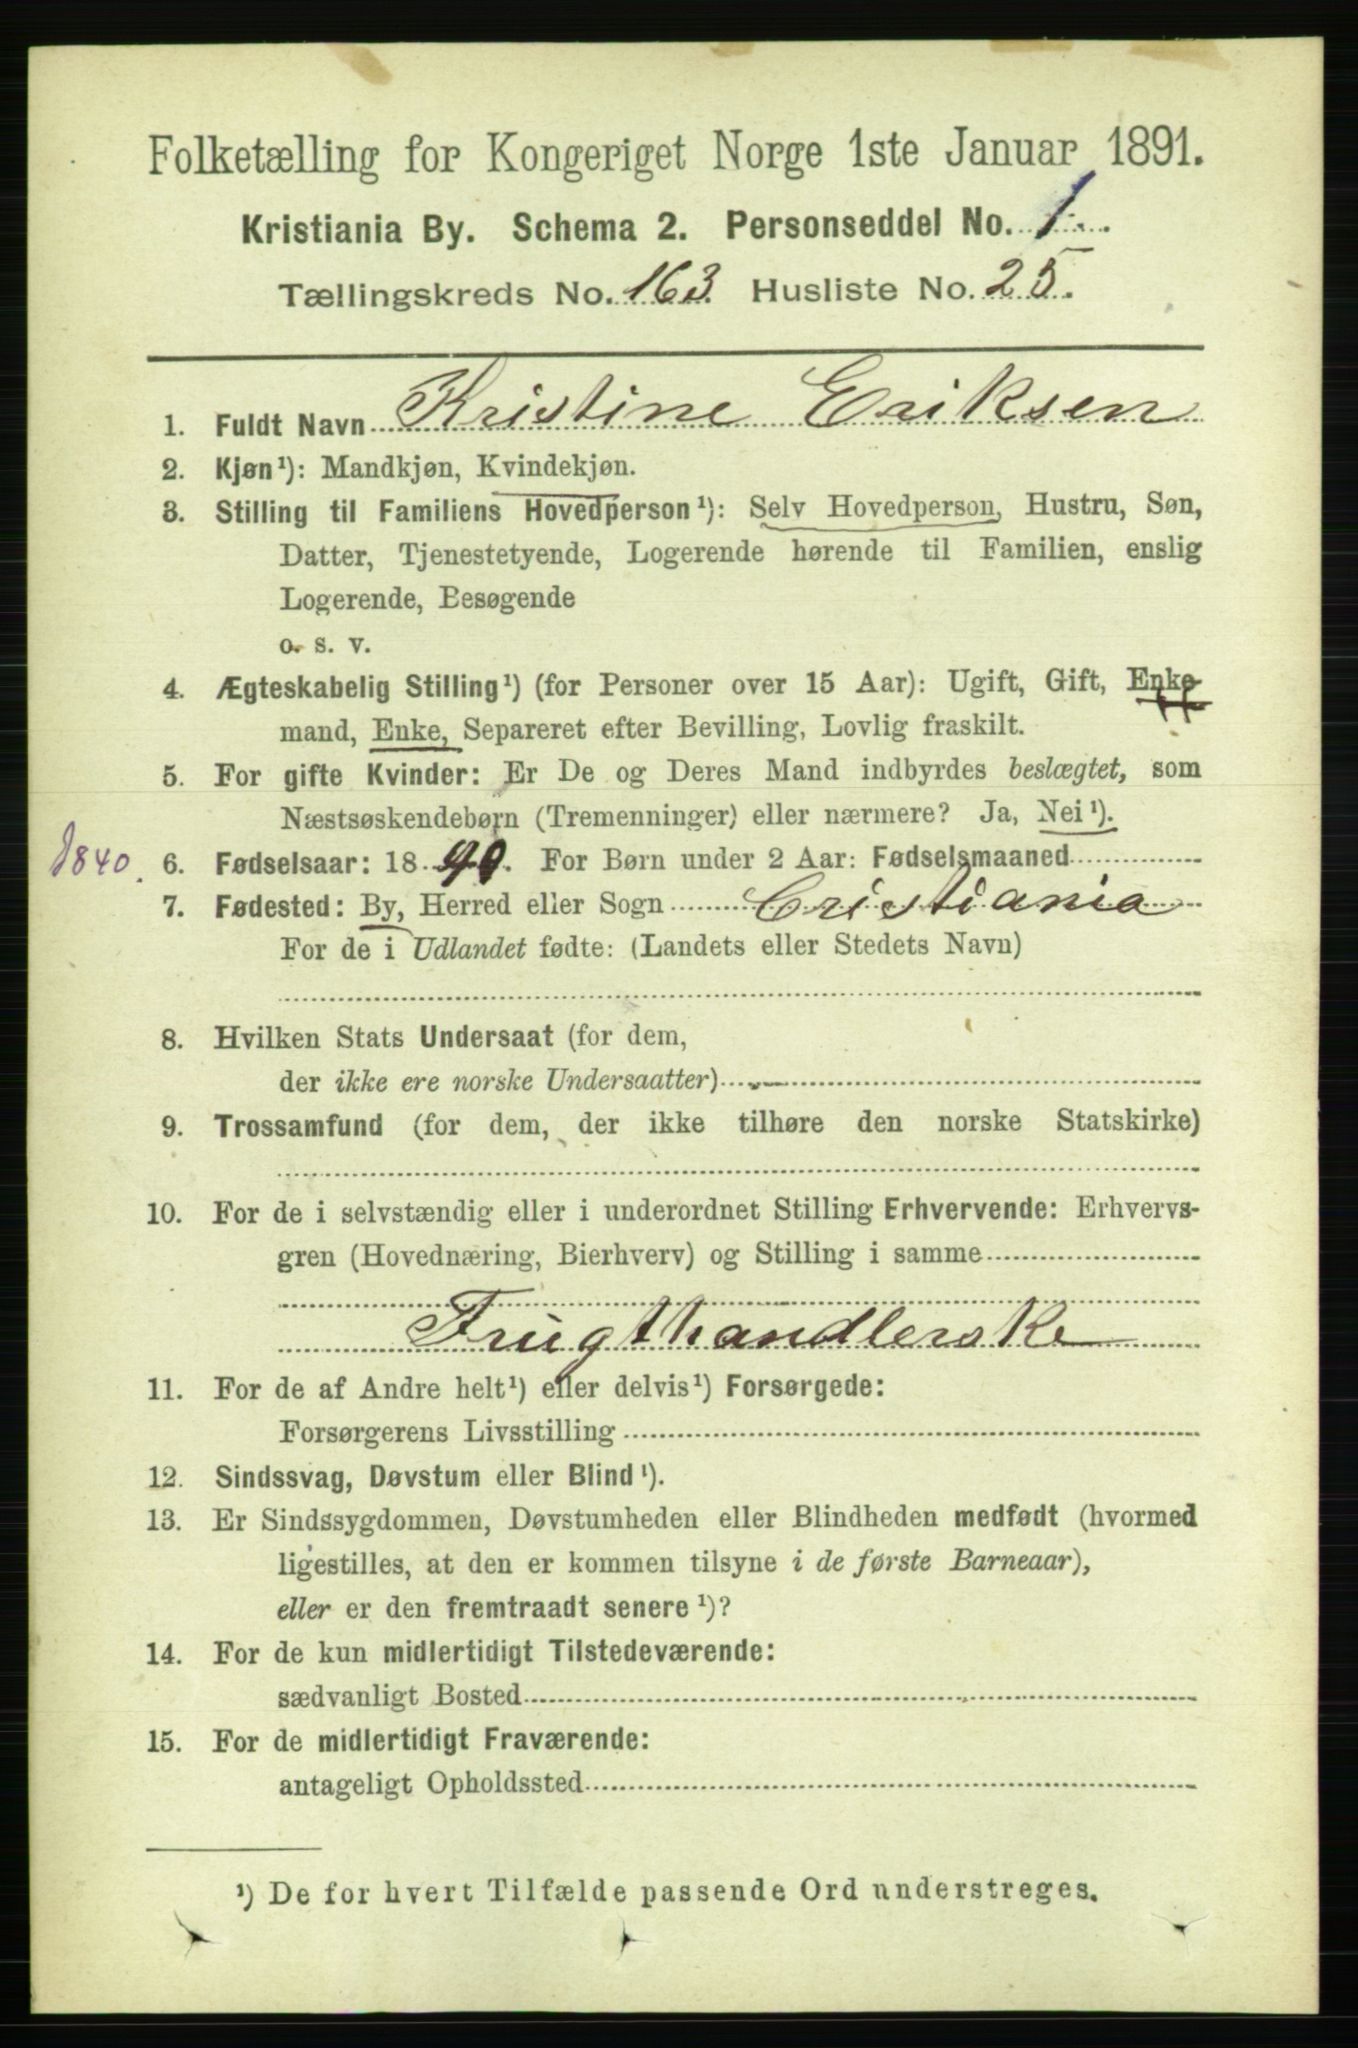 Folketælling for Kongeriget Norge 1ste Januar 1891.
Kristiania By. Schema 2. Personseddel No. 1.
Tællingskreds No. 163. Husliste No. 25.
1. Fuldt Navn Kristine Eriksen
2. Kjøn¹): Mandkjøn, Kvindekjøn.
3. Stilling til Familiens Hovedperson¹): Selv Hovedperson, Hustru, Søn,
Datter, Tjenestetyende, Logerende hørende til Familien, enslig
Logerende, Besøgende
o. s. v.
4. Ægteskabelig Stilling¹) (for Personer over 15 Aar): Ugift, Gift, Enke-
mand, Enke, Separeret efter Bevilling, Lovlig fraskilt.
5. For gifte Kvinder: Er De og Deres Mand indbyrdes beslægtet, som
Næstsøskendebørn (Tremenninger) eller nærmere? Ja, Nei¹).
1840. 6. Fødselsaar: 18 40. For Børn under 2 Aar: Fødselsmaaned
7. Fødested: By, Herred eller Sogn Cristiania
For de i Udlandet fødte: (Landets eller Stedets Navn)
8. Hvilken Stats Undersaat (for dem,
der ikke ere norske Undersaatter)
9. Trossamfund (for dem, der ikke tilhøre den norske Statskirke)
10. For de i selvstændig eller i underordnet Stilling Erhvervende: Erhvervs-
gren (Hovednæring, Bierhverv) og Stilling i samme
Frugthandlerske
11. For de af Andre helt¹) eller delvis¹) Forsørgede:
Forsørgerens Livsstilling
12. Sindssvag, Døvstum eller Blind¹).
13. Er Sindssygdommen, Døvstumheden eller Blindheden medfødt (hvormed
ligestilles, at den er kommen tilsyne i de første Barneaar),
eller er den fremtraadt senere¹)?
14. For de kun midlertidigt Tilstedeværende:
sædvanligt Bosted
15. For de midlertidigt Fraværende:
antageligt Opholdssted
¹) De for hvert Tilfælde passende Ord understreges.